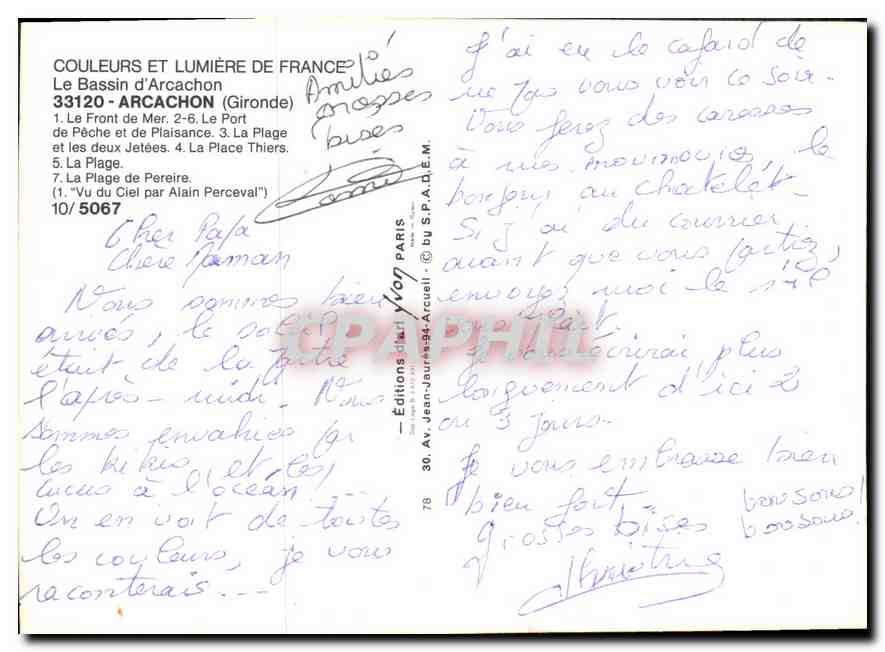 COULEURS ET LUMIÈRE DE FRANCE
Le Bassin d'Arcachon
33120 - ARCACHON (Gironde)
1. Le Front de Mer. 2-6. Le Port
de Pêche et de Plaisance. 3. La Plage
et les deux Jetées. 4. La Place Thiers.
5. La Plage.
7. La Plage de Pereire.
(1. "Vu du Ciel par Alain Perceval")
10/ 5067
Amitiés
grosses
bises
Cher Papa
Chère Maman
Nous sommes bien
arrivés, le soleil
était de la partie
l'après-midi. Nous
sommes envahies par
les kikis et les
cucus à l'océan ...
On en voit de toutes
les couleurs, je vous
raconterais ...
— Éditions d'art yvon PARIS
30. Av. Jean-Jaurès-94-Arcueil - © by S.P.A.D.E.M.
78
CPAPHIL
J'ai eu le cafard de
ne pas vous voir ce soir.
Vous ferez des caresses
à mes moumounes, le
bonjour au chatelét.
Si j'ai du courrier
avant que vous partiez,
envoyez moi le s'il
vous plait.
Je vous écrirai plus
longuement d'ici 2
ou 3 jours.
Je vous embrasse bien
bien fort
grosses bises
Christine